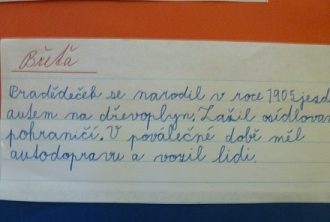 Břéťa
Pradědeček se narodil v roce 1905 jezd
autem na dřevoplyn. Zažil osídlova
pohraničí. V poválečné době měl
autodopravu a vozil lidi.